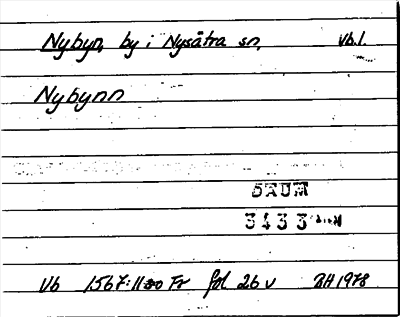 Nybyn, by i Nysätra sn, Vb.l.
Nybynn
DAUM
3433
Vb 1567:11 Fr fol 26 v BH 1978